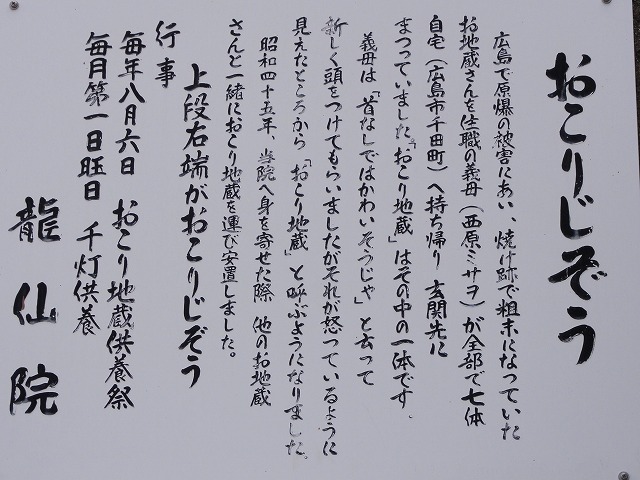 おこりじぞう
広島で原爆の被害にあい、焼け跡で粗末になっていた
お地蔵さんを住職の義母(西原ミサヲ)が全部で七体
自宅(広島市千田町)へ持ち帰り 玄関先に
まつっていました。「おこり地蔵」はその中の一体です。
義母は「首なしではかわいそうじゃ」と云って
新しく頭をつけてもらいましたがそれが怒っているように
見えたところから「おこり地蔵」と呼ぶようになりました。
昭和四十五年、当院へ身を寄せた際 他のお地蔵
さんと一緒におこり地蔵を運び安置しました。
上段右端がおこりじぞう
行事
毎年八月六日 おこり地蔵供養祭
毎月第一日旺日 千灯供養
龍仙院